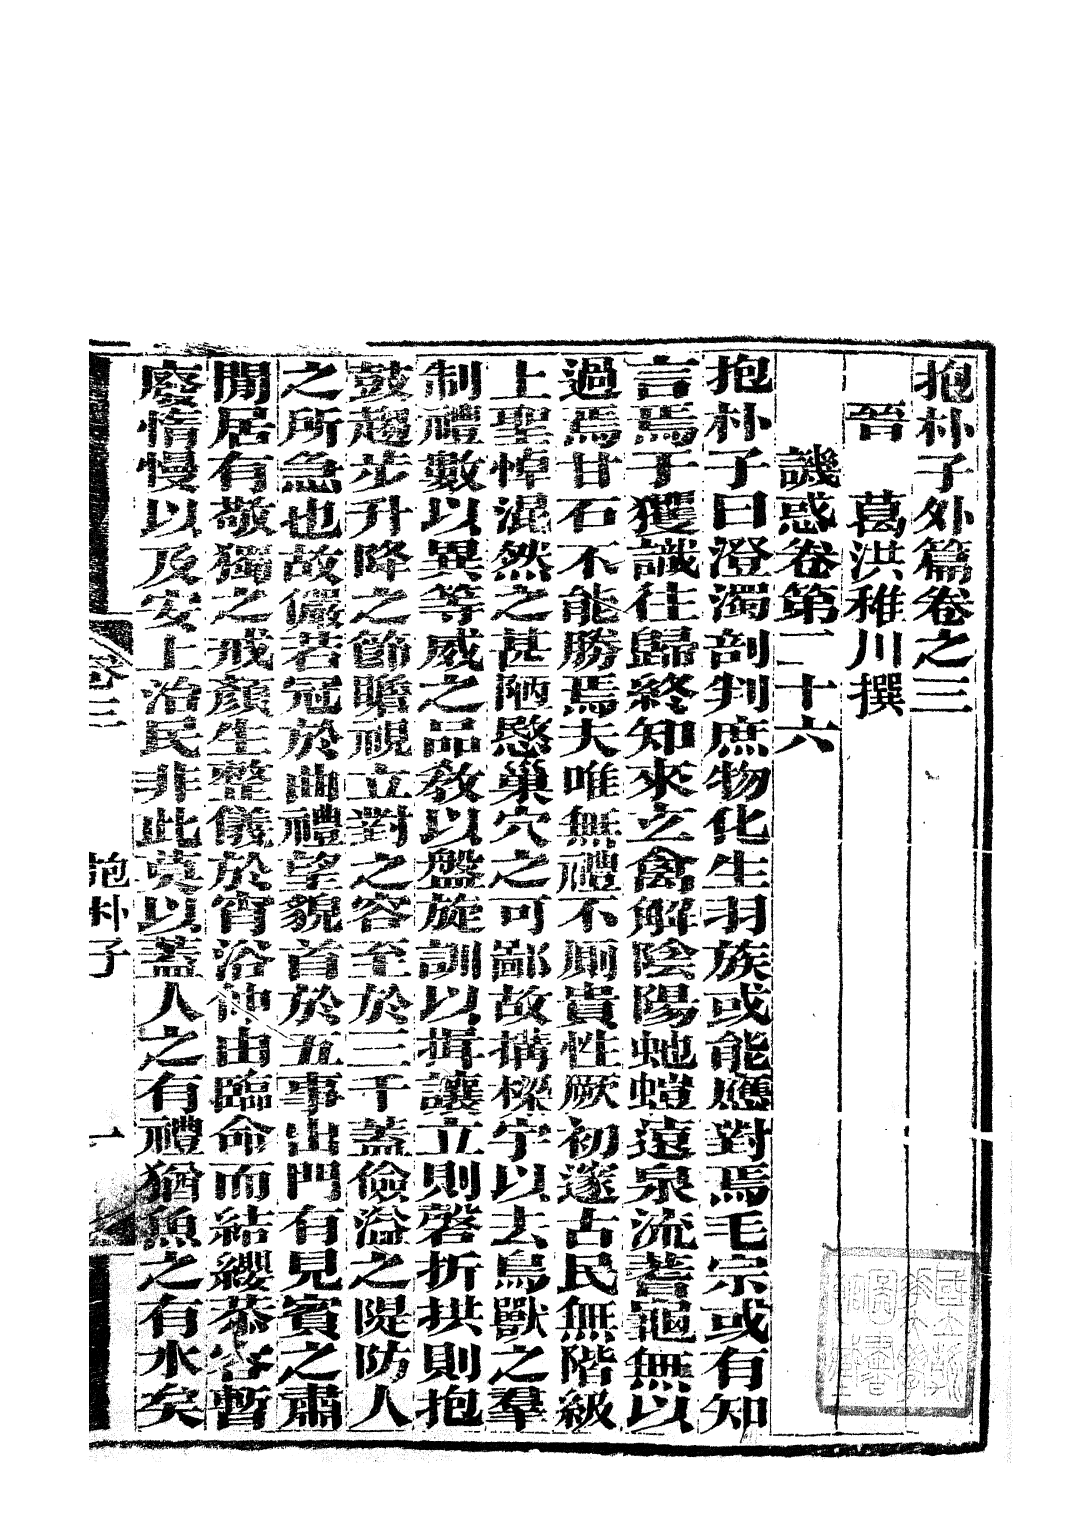 抱朴子外篇卷之三
晉 葛洪稚川撰
譏惑卷第二十六
抱朴子曰澄濁剖判庶物化生羽族或能應對焉毛宗或有知
言焉于玃識往歸終知來玄禽解陰陽虵螘遠泉流蓍龜無以
過焉甘石不能勝焉夫唯無禮不厠貴性厥初邃古民無階級
上聖悼混然之甚陋愍巢穴之可鄙故搆棟宇以去鳥獸之羣
制禮數以異等威之品敎以盤旋訓以揖讓立則磬折拱則抱
鼓趨步升降之節瞻視立對之容至於三千蓋儉溢之隄防人
之所急也故儼若冠於曲禮望貌首於五事出門有見賓之肅
閒居有敬獨之戒顏生整儀於宵浴仲由臨命而結纓恭容暫
廢惰慢以及安上治民非此莫以蓋人之有禮猶魚之有水矣
卷三 抱朴子 一